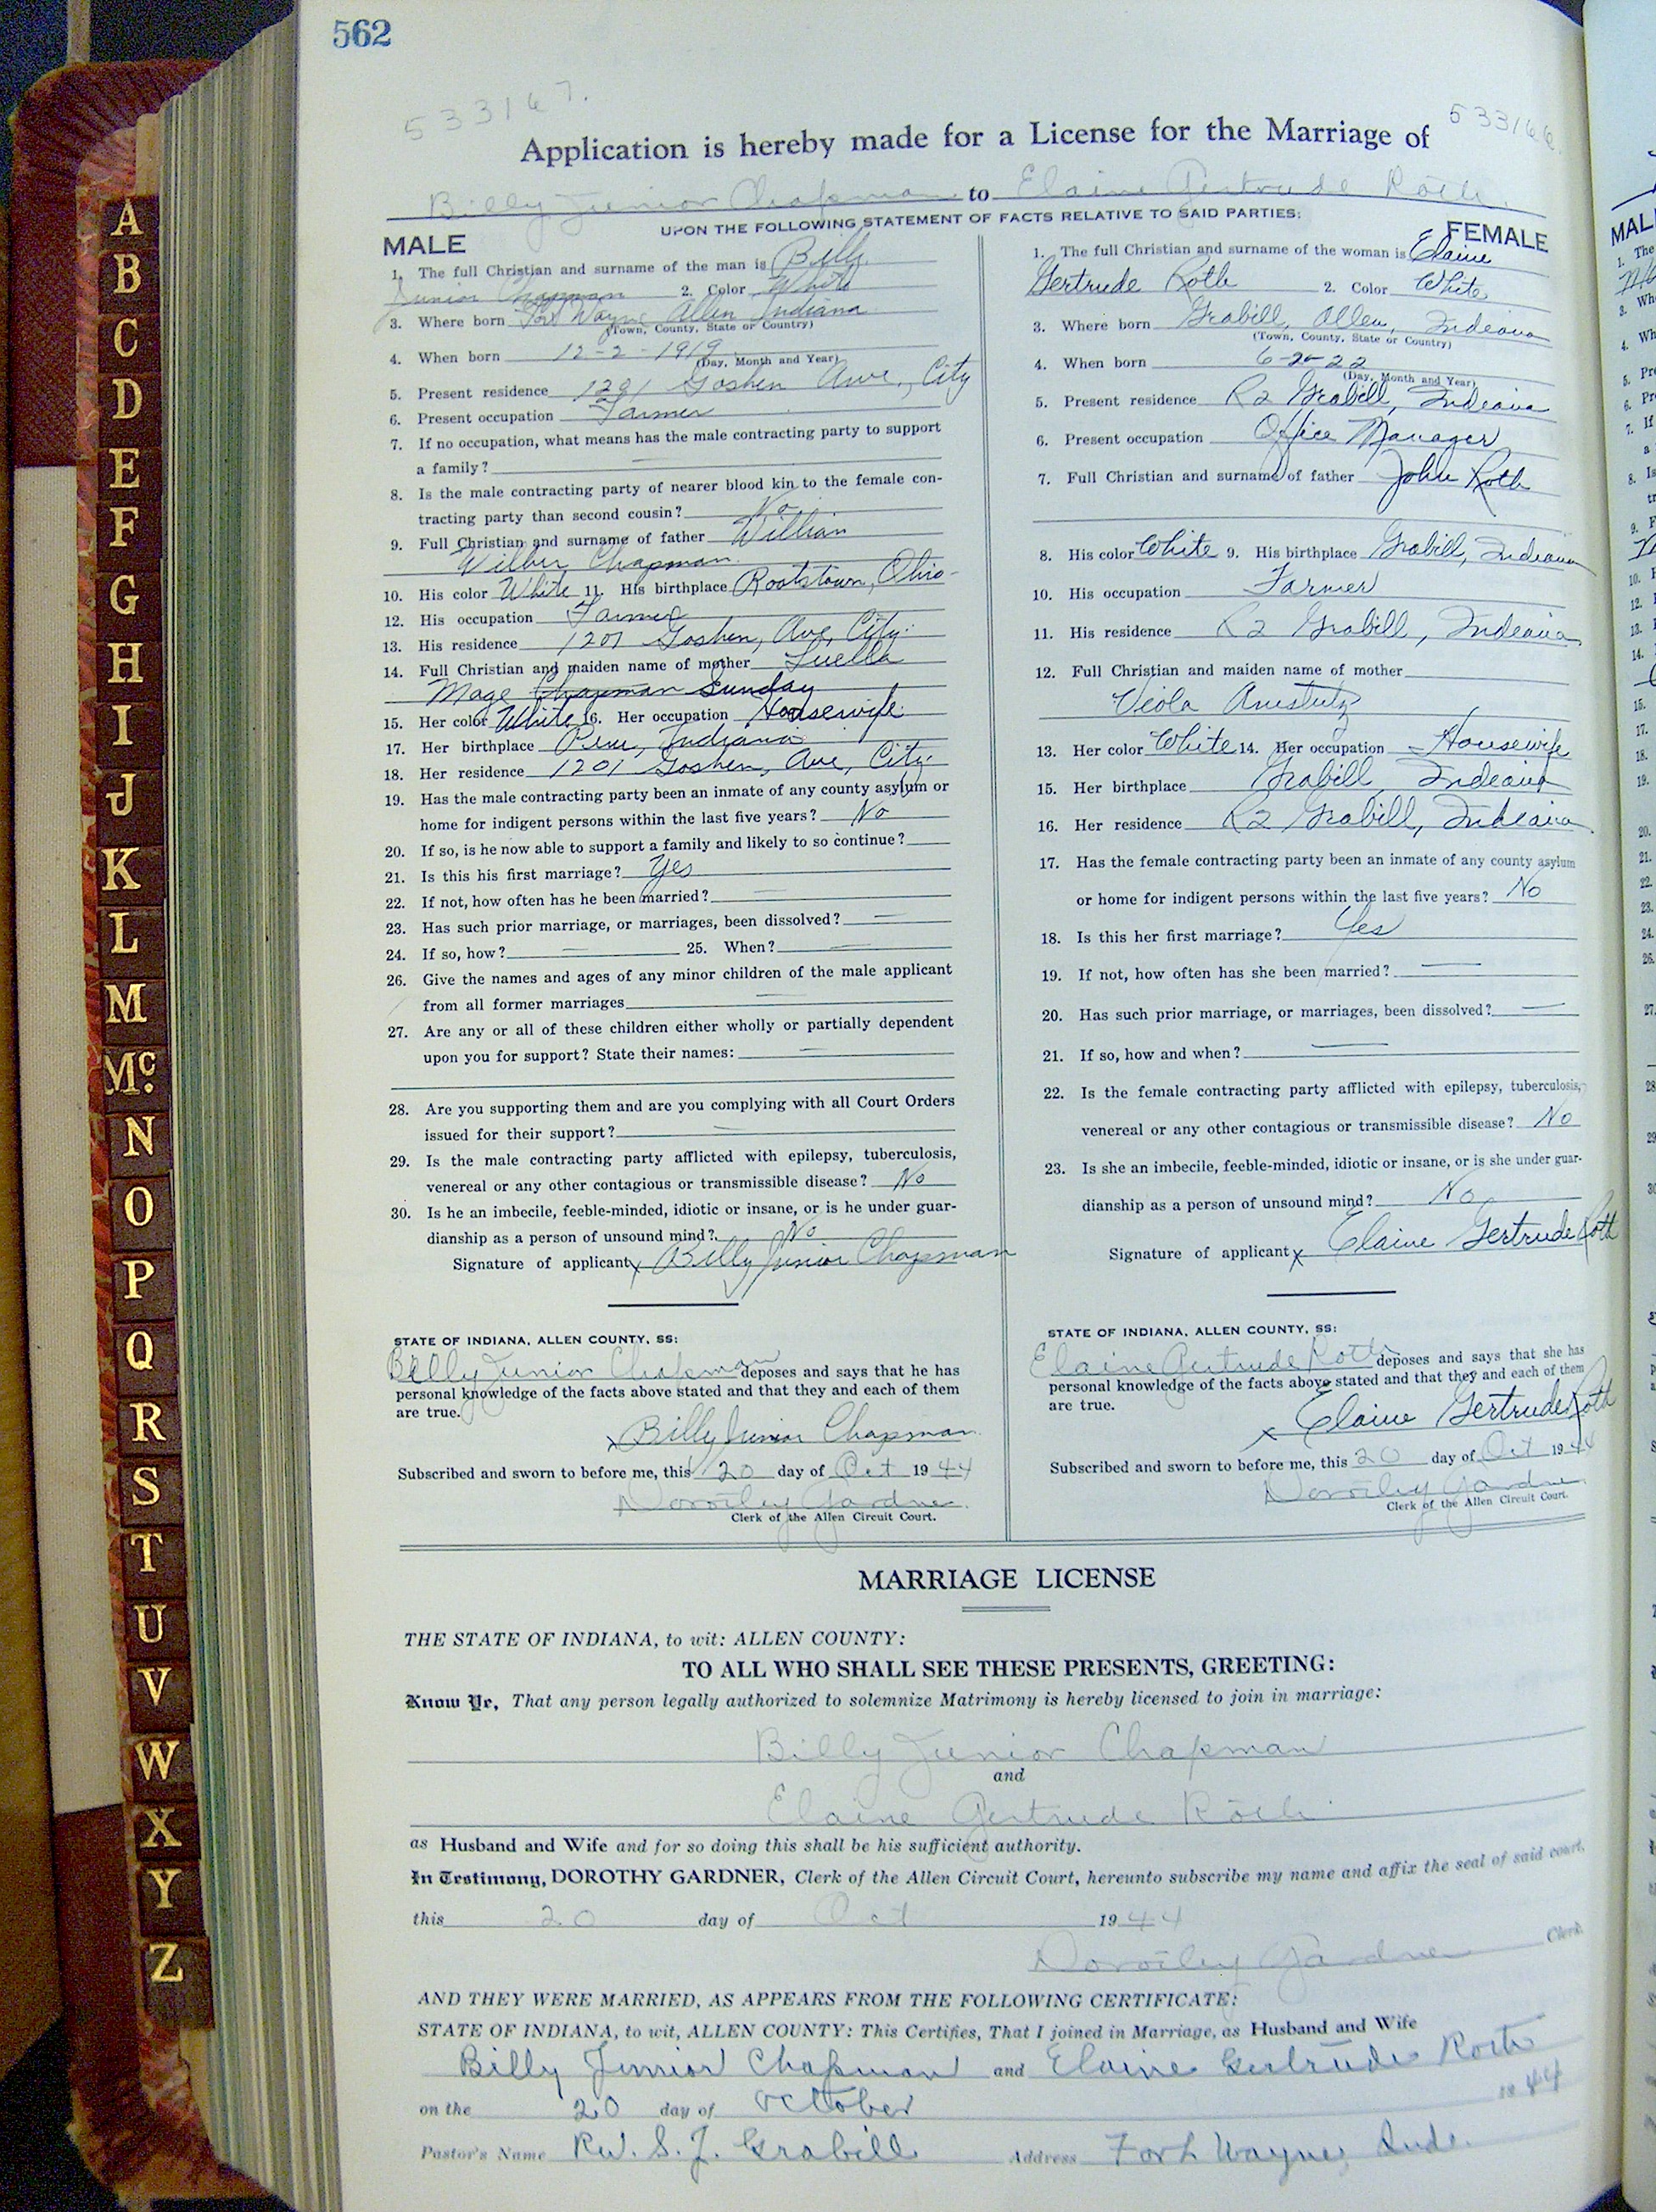 562
533167.
533166.
Application is hereby made for a License for the Marriage of
Billy Junior Chapman to Elaine Gertrude Roth.
UPON THE FOLLOWING STATEMENT OF FACTS RELATIVE TO SAID PARTIES:
MALE
1. The full Christian and surname of the man is Billy
Junior Chapman 2. Color White
3. Where born Fort Wayne Allen Indiana
(Town, County, State or Country)
4. When born 12-2-1919
(Day, Month and Year)
5. Present residence 1201 Goshen Ave., City
6. Present occupation Farmer
7. If no occupation, what means has the male contracting party to support
a family? —
8. Is the male contracting party of nearer blood kin to the female con-
tracting party than second cousin? No
9. Full Christian and surname of father William
Wilber Chapman
10. His color White 11. His birthplace Rootstown, Ohio
12. His occupation Farmer
13. His residence 1201 Goshen, Ave, City.
14. Full Christian and maiden name of mother Luella
Mage Chapman Sunday
15. Her color White 16. Her occupation Housewife
17. Her birthplace Peru, Indiana
18. Her residence 1201 Goshen, Ave, City.
19. Has the male contracting party been an inmate of any county asylum or
home for indigent persons within the last five years? No
20. If so, is he now able to support a family and likely to so continue?
21. Is this his first marriage? Yes
22. If not, how often has he been married? —
23. Has such prior marriage, or marriages, been dissolved? —
24. If so, how? — 25. When? —
26. Give the names and ages of any minor children of the male applicant
from all former marriages —
27. Are any or all of these children either wholly or partially dependent
upon you for support? State their names: —
28. Are you supporting them and are you complying with all Court Orders
issued for their support? —
29. Is the male contracting party afflicted with epilepsy, tuberculosis,
venereal or any other contagious or transmissible disease? No
30. Is he an imbecile, feeble-minded, idiotic or insane, or is he under guar-
dianship as a person of unsound mind? No
Signature of applicant x Billy Junior Chapman
STATE OF INDIANA, ALLEN COUNTY, SS:
Billy Junior Chapman deposes and says that he has
personal knowledge of the facts above stated and that they and each of them
are true.
x Billy Junior Chapman
Subscribed and sworn to before me, this 20 day of Oct 1944
Dorothy Gardner
Clerk of the Allen Circuit Court.
FEMALE
1. The full Christian and surname of the woman is Elaine
Gertrude Roth 2. Color White
3. Where born Grabill, Allen, Indiana
(Town, County, State or Country)
4. When born 6-20-22
(Day, Month and Year)
5. Present residence R2 Grabill, Indiana
6. Present occupation Office Manager
7. Full Christian and surname of father John Roth
8. His color White 9. His birthplace Grabill, Indiana
10. His occupation Farmer
11. His residence R2 Grabill, Indiana
12. Full Christian and maiden name of mother
Viola Amstutz
13. Her color White 14. Her occupation Housewife
15. Her birthplace Grabill Indiana
16. Her residence R2 Grabill, Indiana
17. Has the female contracting party been an inmate of any county asylum
or home for indigent persons within the last five years? No
18. Is this her first marriage? Yes
19. If not, how often has she been married? —
20. Has such prior marriage, or marriages, been dissolved? —
21. If so, how and when? —
22. Is the female contracting party afflicted with epilepsy, tuberculosis,
venereal or any other contagious or transmissible disease? No
23. Is she an imbecile, feeble-minded, idiotic or insane, or is she under guar-
dianship as a person of unsound mind? No
Signature of applicant x Elaine Gertrude Roth
STATE OF INDIANA, ALLEN COUNTY, SS:
Elaine Gertrude Roth deposes and says that she has
personal knowledge of the facts above stated and that they and each of them
are true.
x Elaine Gertrude Roth
Subscribed and sworn to before me, this 20 day of Oct 1944
Dorothy Gardner
Clerk of the Allen Circuit Court.
MARRIAGE LICENSE
THE STATE OF INDIANA, to wit: ALLEN COUNTY:
TO ALL WHO SHALL SEE THESE PRESENTS, GREETING:
Know Ye, That any person legally authorized to solemnize Matrimony is hereby licensed to join in marriage:
Billy Junior Chapman
and
Elaine Gertrude Roth
as Husband and Wife and for so doing this shall be his sufficient authority.
In Testimony, DOROTHY GARDNER, Clerk of the Allen Circuit Court, hereunto subscribe my name and affix the seal of said court,
this 20 day of Oct 1944
Dorothy Gardner Clerk
AND THEY WERE MARRIED, AS APPEARS FROM THE FOLLOWING CERTIFICATE:
STATE OF INDIANA, to wit, ALLEN COUNTY: This Certifies, That I joined in Marriage, as Husband and Wife
Billy Junior Chapman and Elaine Gertrude Roth
on the 20 day of October 1944
Pastor's Name Rev. S. J. Grabill Address Fort Wayne, Inde.
A
B
C
D
E
F
G
H
I
J
K
L
M
Mc.
N
O
P
Q
R
S
T
U
V
W
X
Y
Z